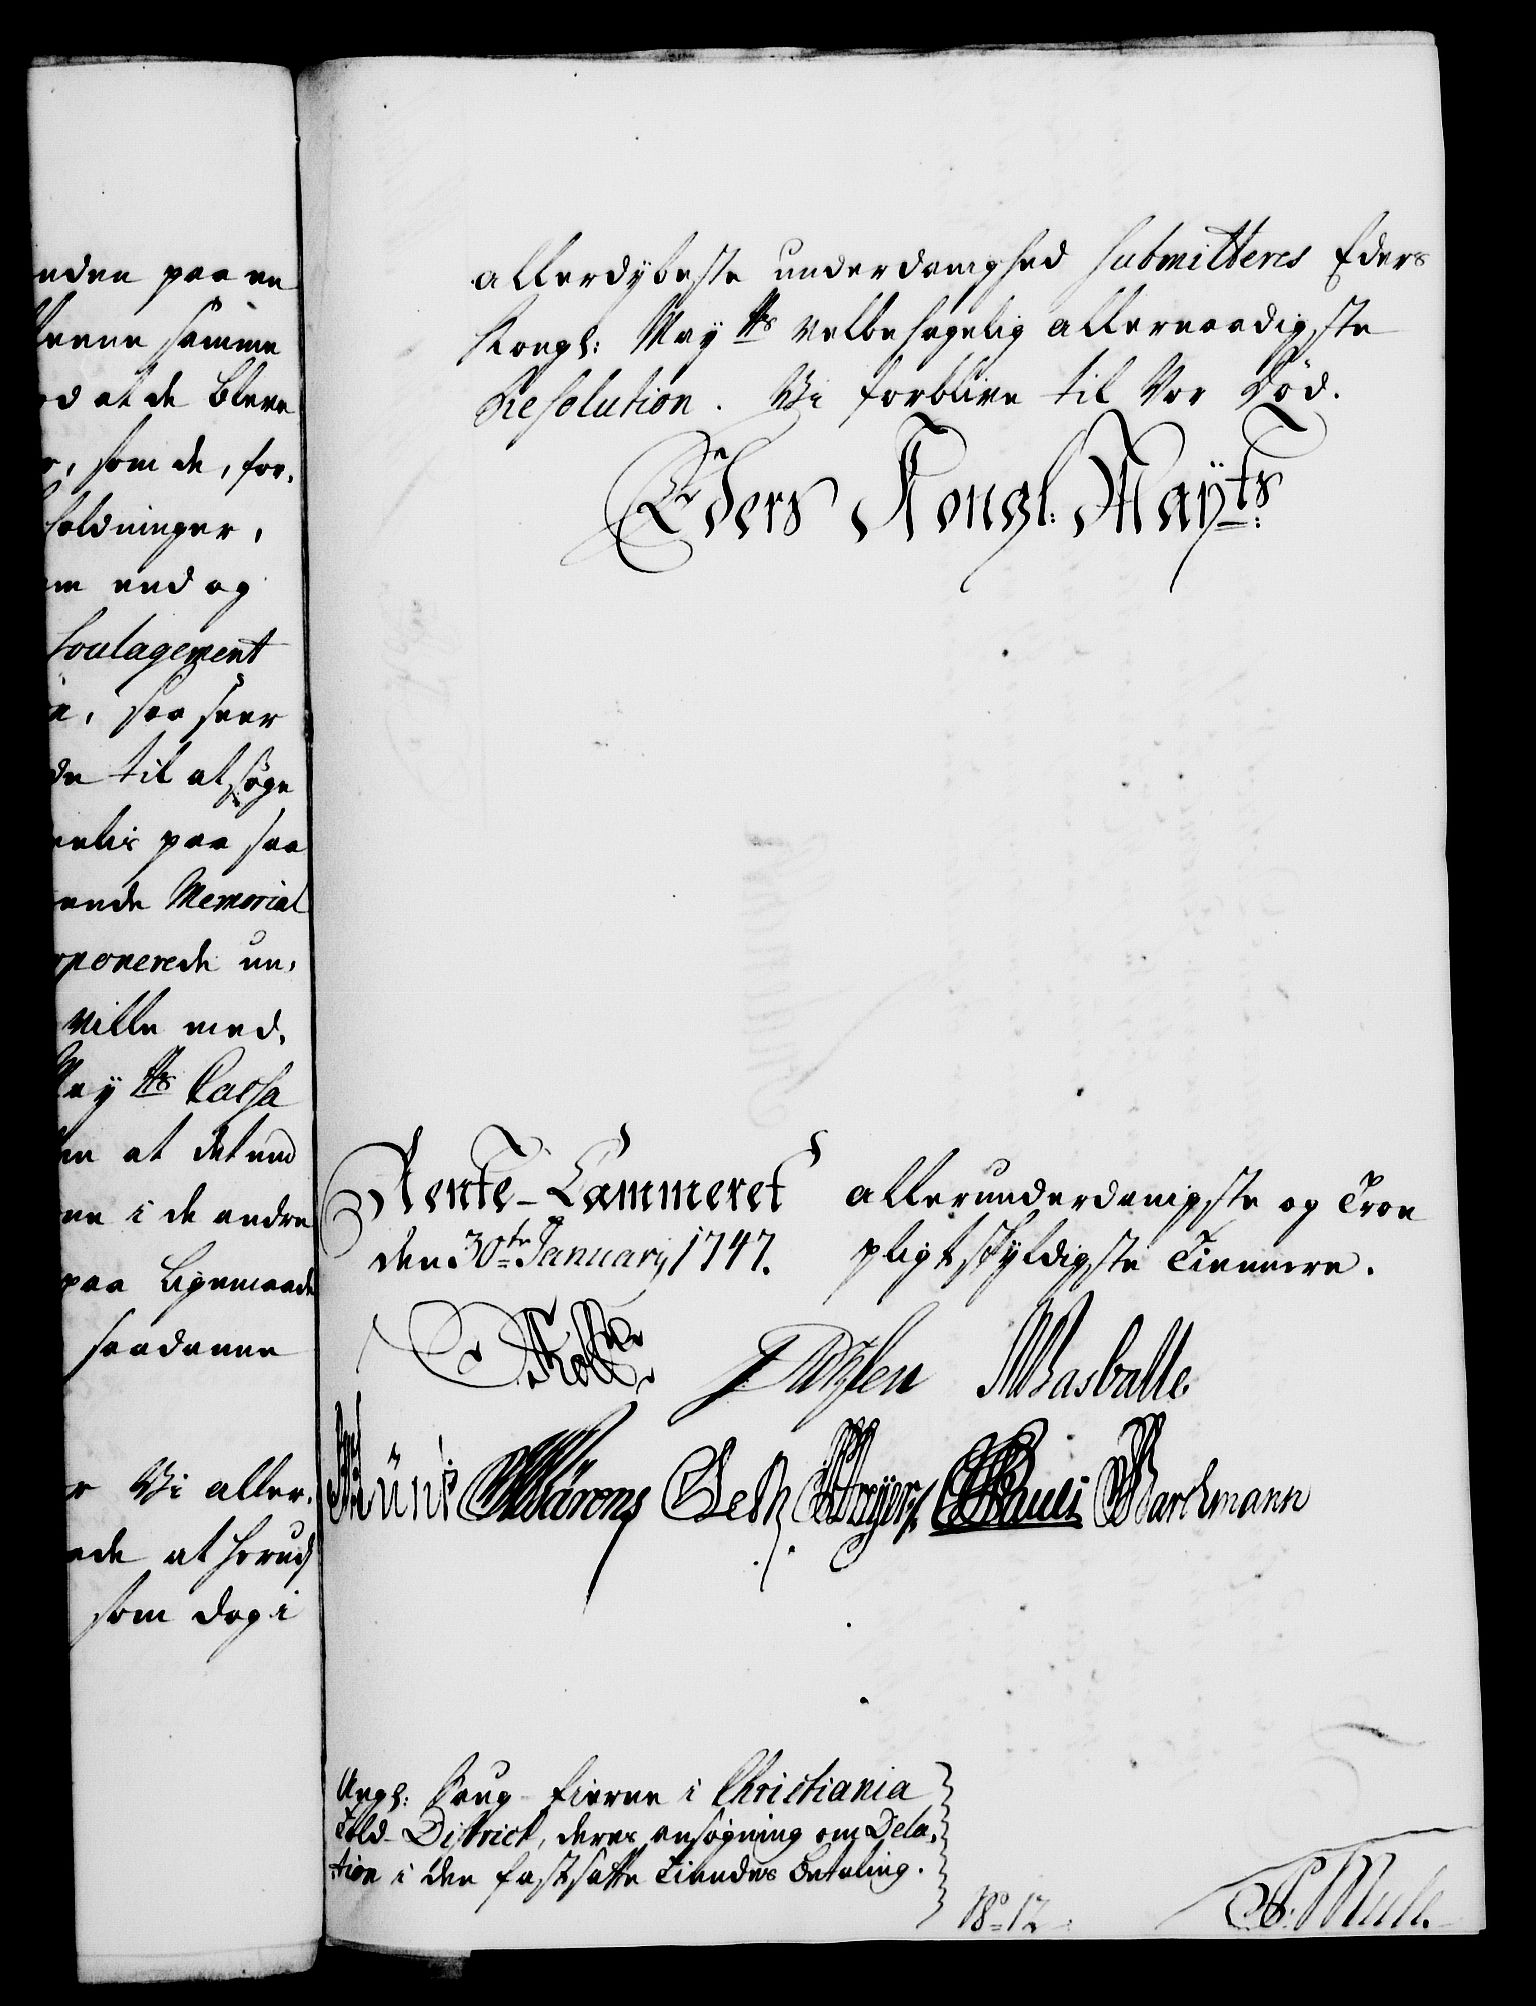 nden paa en
samme
at de bleve
som de, for,
holdninger,
end og
Soulagement
saa svær
til at søge
paa saa
ende Memorial
ponerede un,
ville med,
May.ts Cassa
at det end
i de andre
paa ligemaade
saadanne
Vi aller,
at herud
som dog i
allerdybeste underdanighed submitteres Eders
Kongl: May.ts velbehagelig allernaadigste
Resolution. Vi forblive til Vor död.
Eders Kongl: May.ts
Rente-Cammeret
den 30.te January 1747.
allerunderdanigste og Troe
pligtskyldigste Tienere.
Masballe
Pauli Barchmann
Angl: Saug-Eierne i Christiania
Told-District, deres ansøgning om Dela,
tion i den fastsatte Tiendes betaling.
No 12